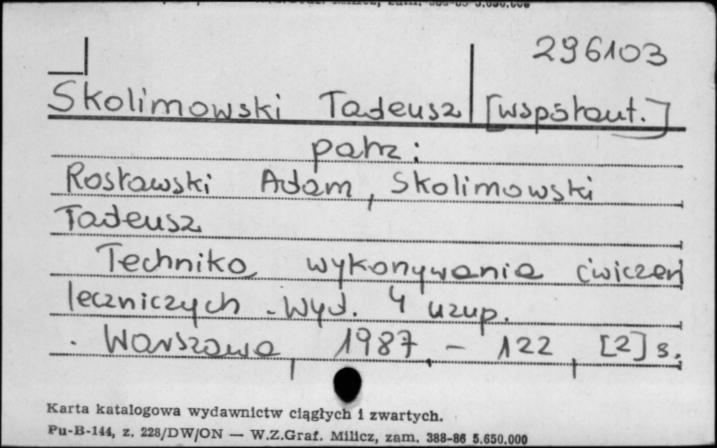 296103
Skolimowski Tadeusz [współaut.]
patrz:
Rosławski Adam, Skolimowski
Tadeusz
Technika wykonywania ćwiczeń
leczniczych. Wyd. 4 uzup.
. Warszawa, 1987. – 122, [2] s.
Karta katalogowa wydawnictw ciągłych i zwartych.
Pu-B-144, z. 228/DW/ON — W.Z.Graf. Milicz, zam. 388-86 5.650.000